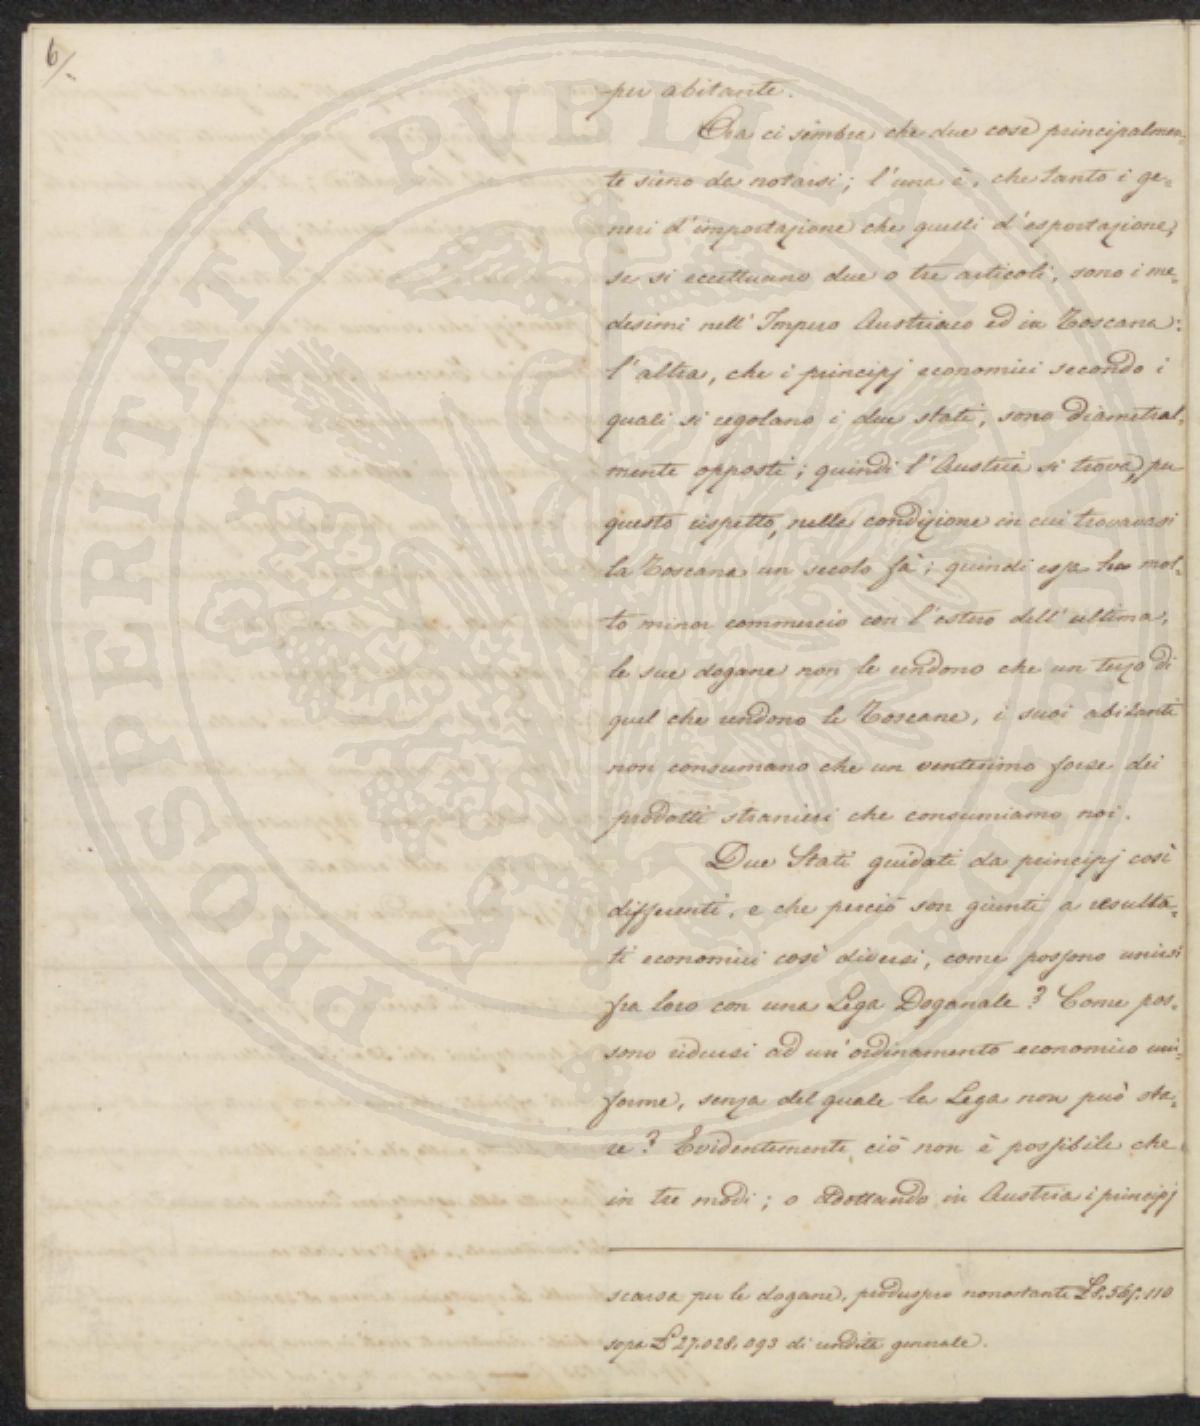 6/.
per abitante.
Ora ci sembra che due cose principalmen-
te sieno da notarsi; l'una è, che tanto i ge-
neri d'importazione che quelli d'esportazione,
se si eccettuano due o tre articoli, sono i me-
desimi nell'Impero Austriaco ed in Toscana:
l'altra, che i principj economici secondo i
quali si regolano i due stati, sono diametral-
mente opposti; quindi l'Austria si trova, per
questo rispetto, nella condizione in cui trovavasi
la Toscana un secolo fà; quindi essa ha mol-
to minor commercio con l'estero dell'ultima,
le sue dogane non le rendono che un terzo di
quel che rendono le Toscane, i suoi abitanti
non consumano che un ventesimo forse dei
prodotti stranieri che consumiamo noi.
Due Stati guidati da principj così
differenti, e che perciò son giunti a resulta-
ti economici così diversi, come possono unirsi
fra loro con una Lega Doganale? Come pos-
sono ridursi ad un'ordinamento economico uni-
forme, senza del quale la Lega non può sta-
re? Evidentemente ciò non è possibile che
in tre modi; o adottando in Austria i principj
scarsa per le dogane, produssero nonostante £ 8.567.110
sopra £ 27.028.093 di rendita generale.
PROSPERITATI PVBLICAE